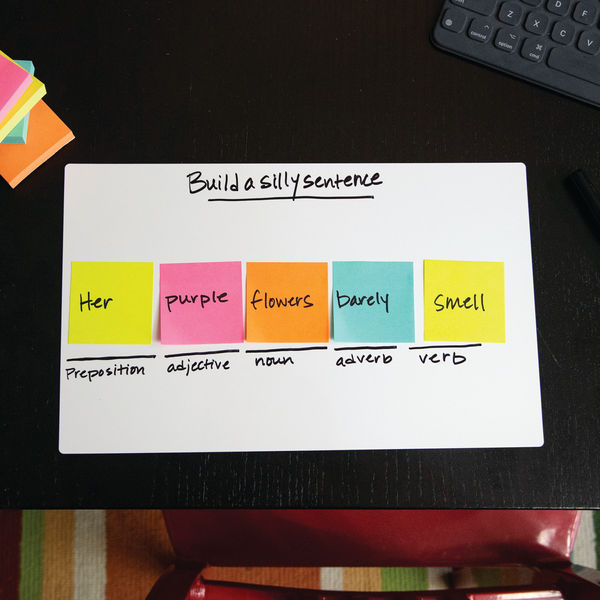 Build a silly sentence
Her purple flowers barely smell
Preposition adjective noun adverb verb
D F
Z X C V
control option cmd